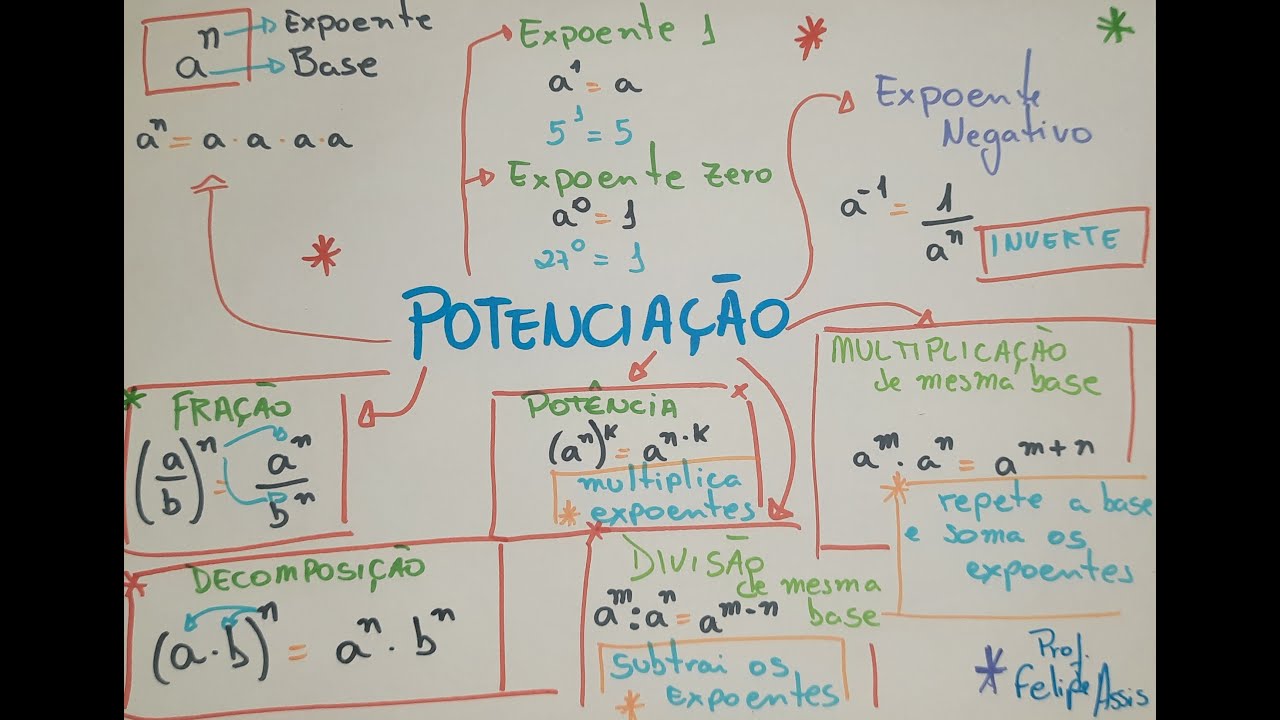 aⁿ → Expoente
→ Base
aⁿ = a · a · a · a
Expoente 1
a¹ = a
5¹ = 5
Expoente Zero
a⁰ = 1
27⁰ = 1
Expoente
Negativo
a⁻¹ = 1/aⁿ
INVERTE
POTENCIAÇÃO
FRAÇÃO
(a/b)ⁿ = aⁿ/bⁿ
POTÊNCIA
(aⁿ)ᵏ = aⁿ·ᵏ
multiplica
* expoentes
MULTIPLICAÇÃO
de mesma base
aᵐ · aⁿ = aᵐ⁺ⁿ
* repete a base
e soma os
expoentes
DECOMPOSIÇÃO
(a · b)ⁿ = aⁿ · bⁿ
DIVISÃO
de mesma
base
aᵐ : aⁿ = aᵐ⁻ⁿ
subtrai os
* expoentes
* Prof.
Felipe Assis